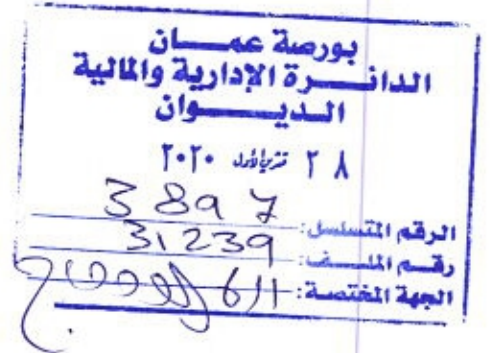 بورصة عمـــان
الدائـــرة الإدارية والمالية
الديـــوان
٢٨ تشرين الأول ٢٠٢٠
الرقم المتسلسل: 3897
رقـــم الملـــف: 31239
الجهة المختصة: